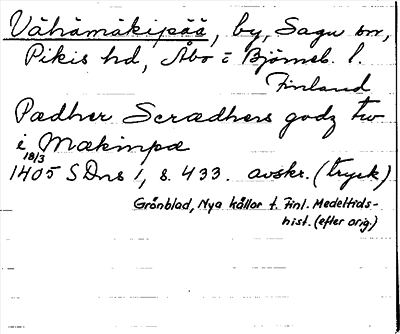 Vähämäkipää, by, Sagu sn,
Pikis hd, Åbo = Björneb. l.
Finland
Pædher Scrædhers godz tw
i Mækinpæ
18/3
1405 SDns 1, s. 433. avskr. (tryck)
Grönblad, Nya källor t. Finl. Medeltids-
hist. (efter orig.)